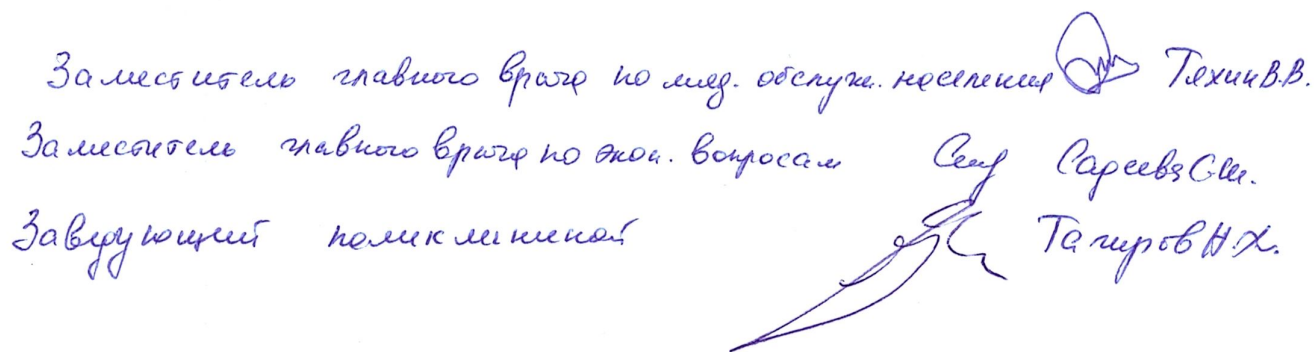 Заместитель главного врача по мед. обслуж. населения Тяхин В.В.
Заместитель главного врача по экон. вопросам Садеева С.Ш.
Заведующий поликлиникой Тагиров Н.Х.